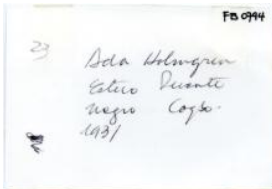 FB 0994
23
Ada Holmgren
Estero Puente
negro Cogbo.
1931